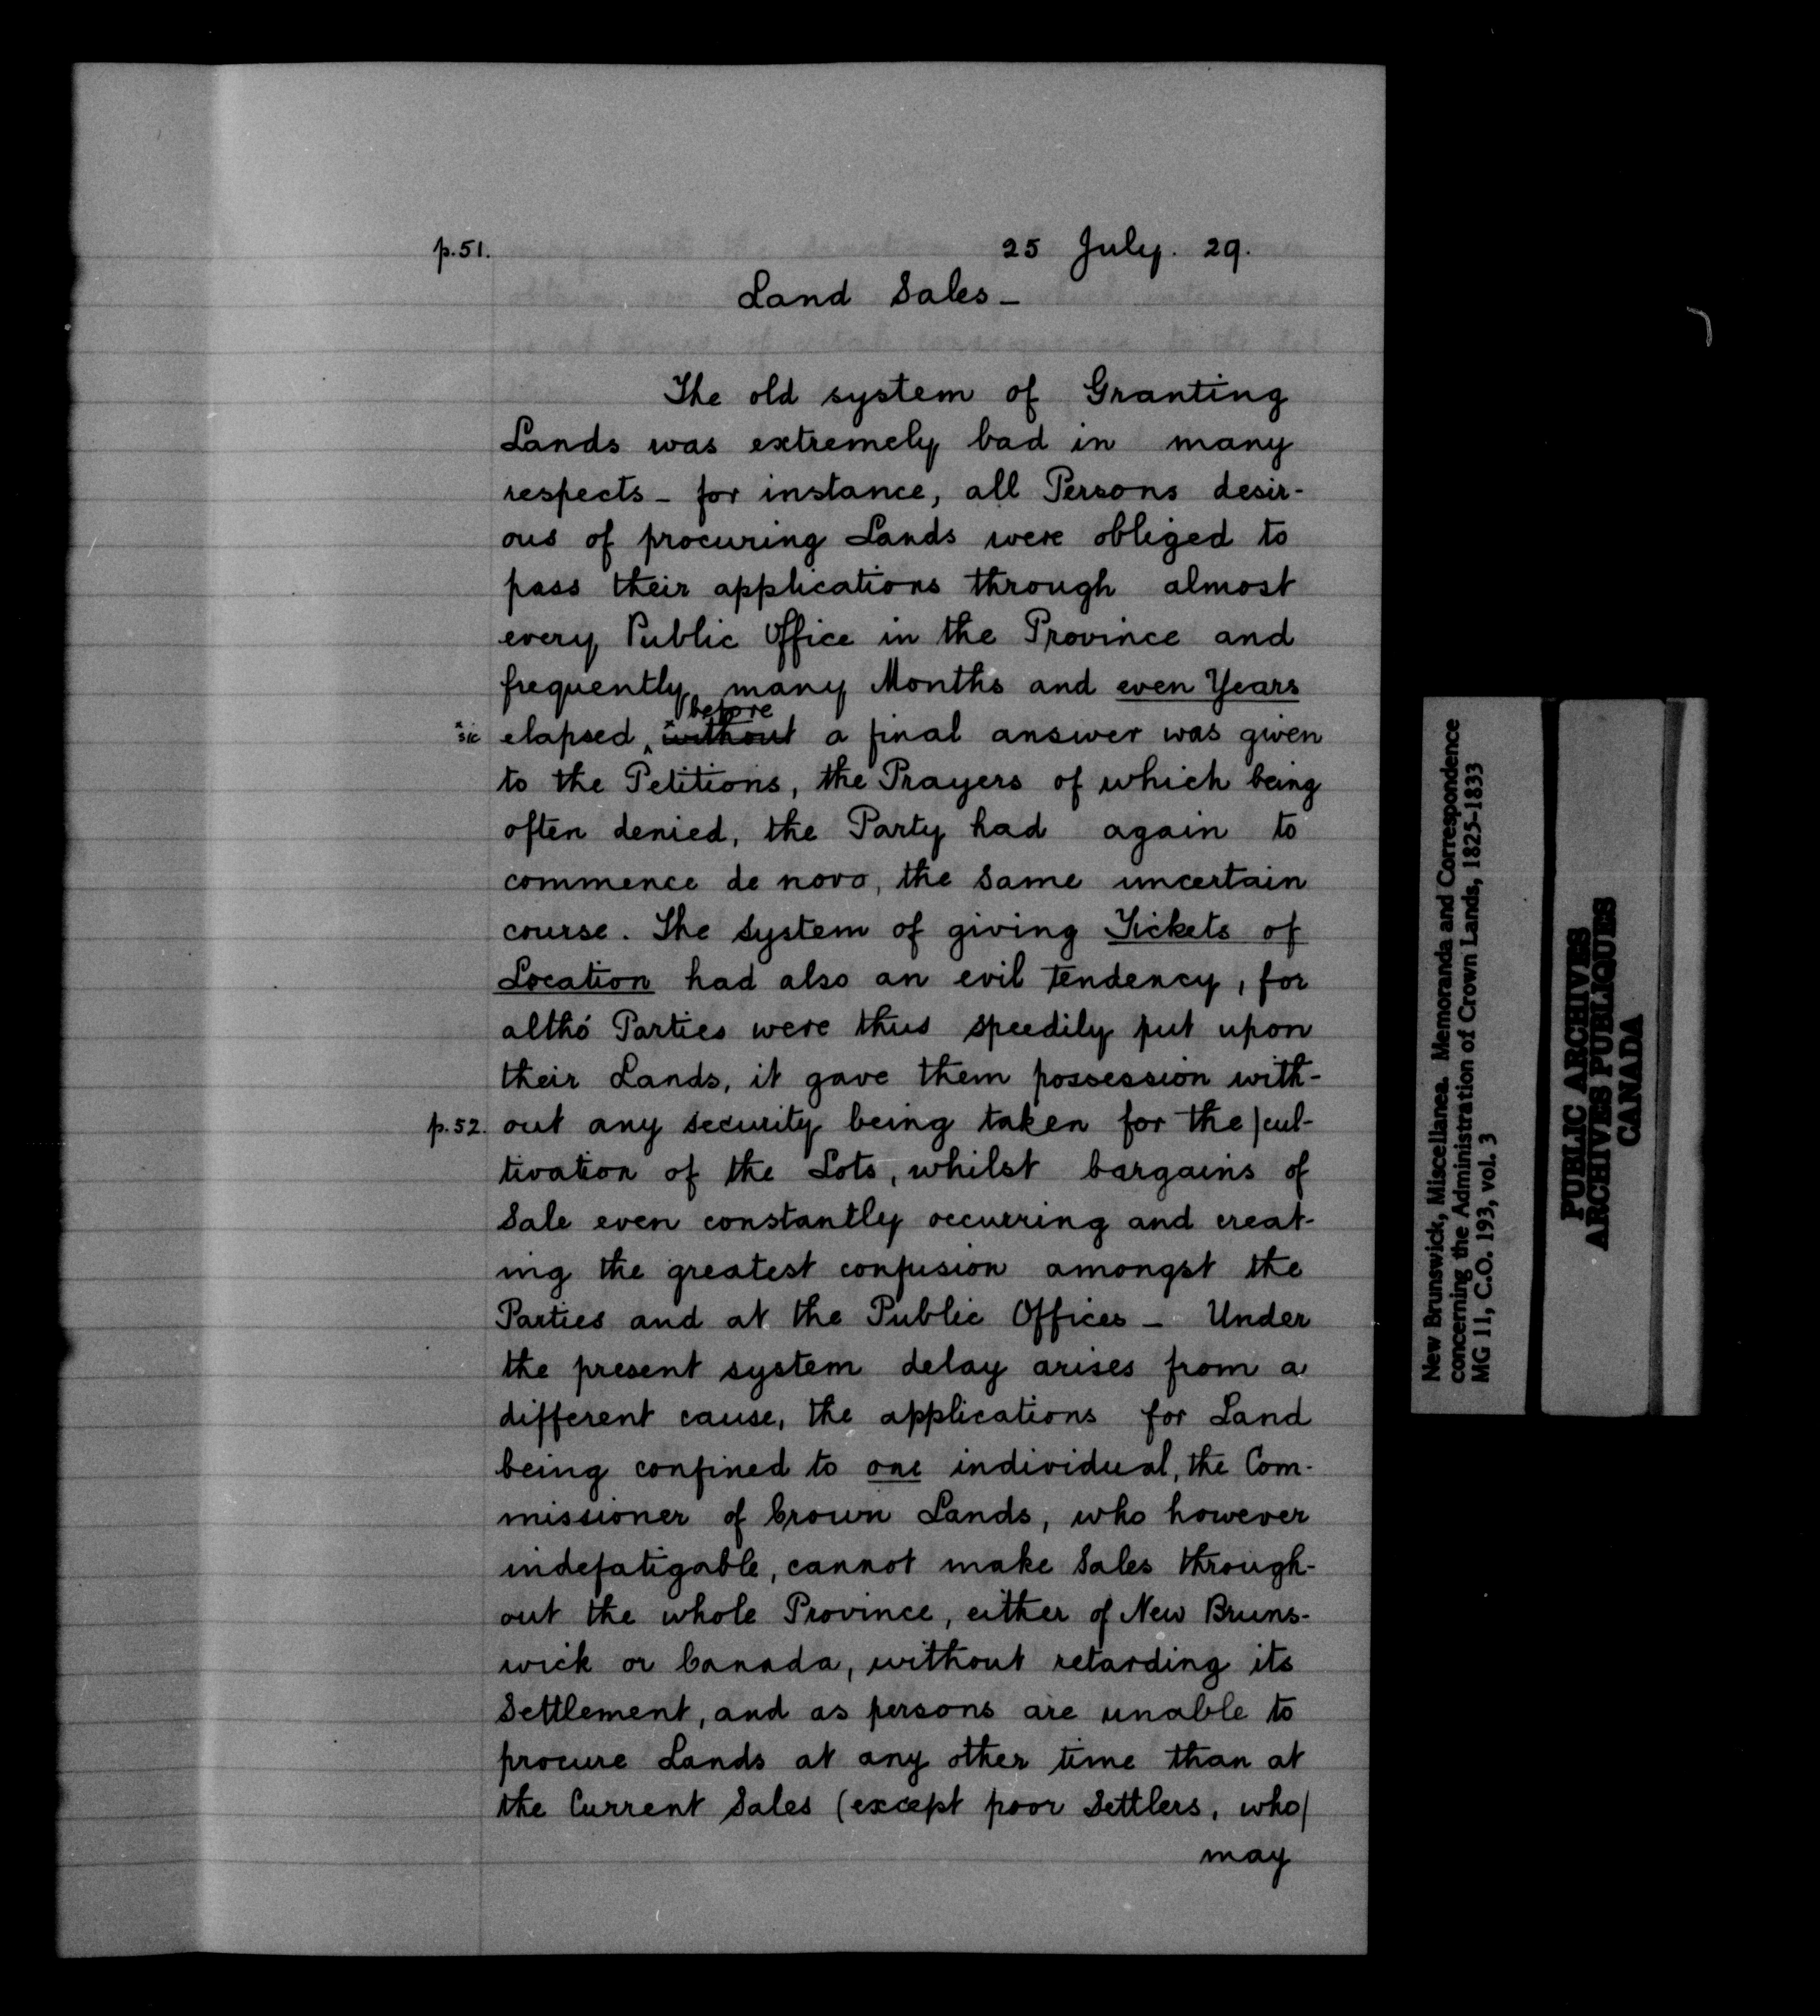 p.51. 25 July. 29.
Land Sales_
The old system of Granting
Lands was extremely bad in many
respects_ for instance, all Persons desir-
ous of procuring Lands were obliged to
pass their applications through almost
every Public Office in the Province and
frequently many Months and even Years
before
x sic elapsed, x without a final answer was given
to the Petitions, the Prayers of which being
often denied, the Party had again to
commence de novo, the same uncertain
course. The system of giving Tickets of
Location had also an evil tendency, for
altho' Parties were thus speedily put upon
their Lands, it gave them possession with-
p.52. out any security being taken for the/cul-
tivation of the Lots, whilst bargains of
Sale even constantly occurring and creat-
ing the greatest confusion amongst the
Parties and at the Public Offices_ Under
the present system delay arises from a
different cause, the applications for Land
being confined to one individual, the Com-
missioner of Crown Lands, who however
indefatigable, cannot make Sales through-
out the whole Province, either of New Bruns-
wick or Canada, without retarding its
Settlement, and as persons are unable to
procure Lands at any other time than at
the Current Sales (except poor Settlers, who/
may
New Brunswick, Miscellanea. Memoranda and Correspondence
concerning the Administration of Crown Lands, 1825-1833
MG 11, C.O. 193, vol. 3
PUBLIC ARCHIVES
ARCHIVES PUBLIQUES
CANADA